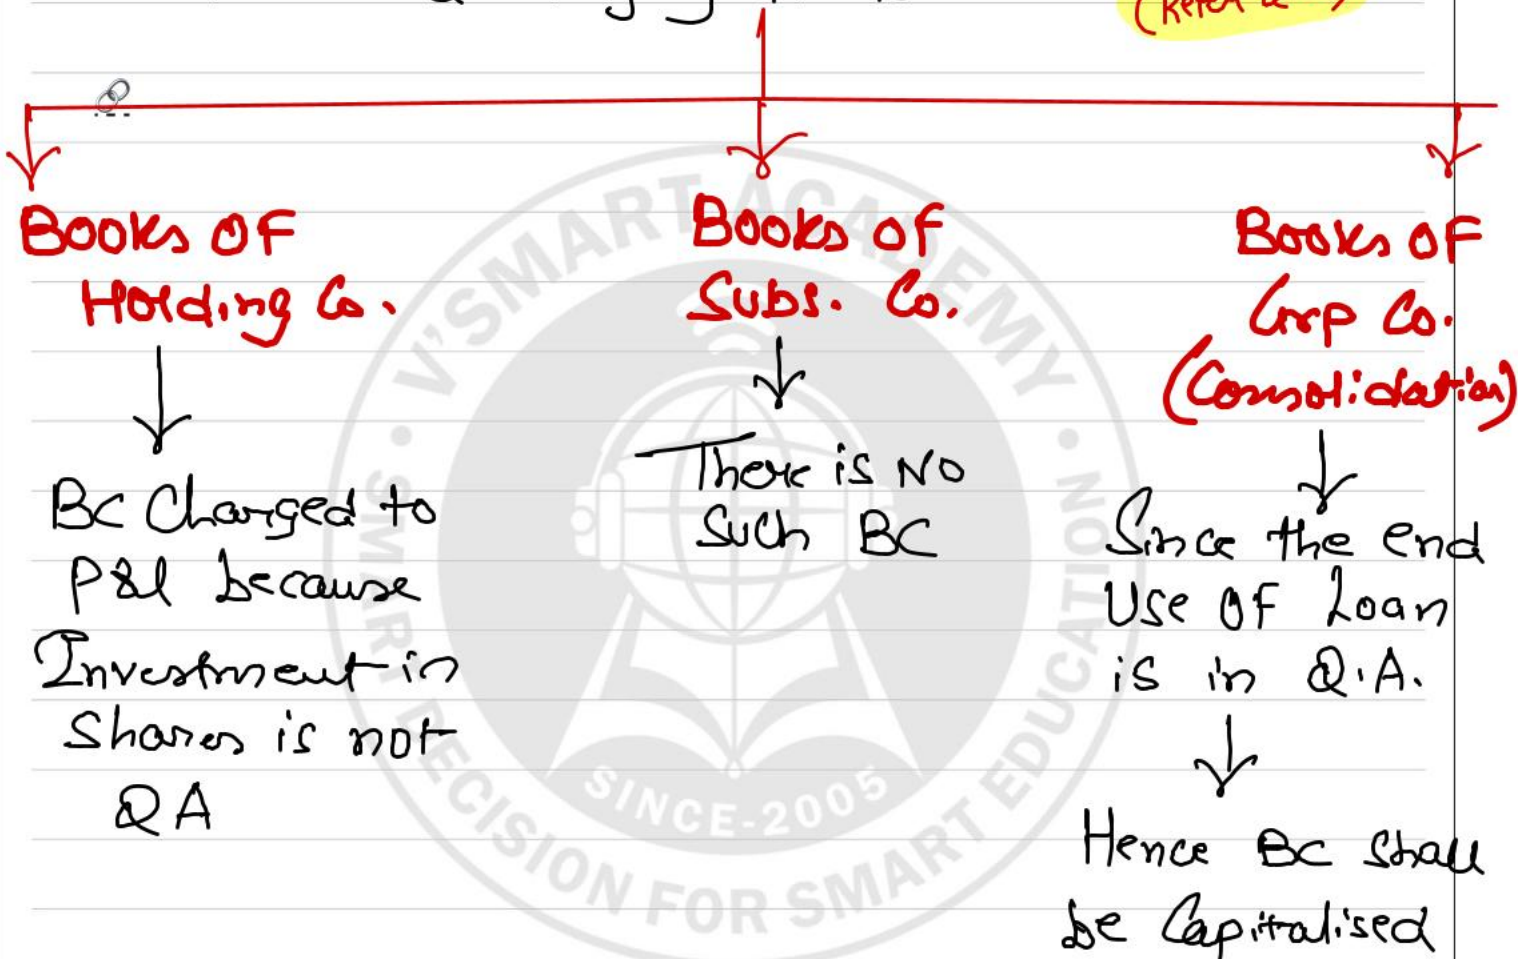 (Refer
Books OF
Holding Co.
BC Charged to
P&L because
Investment in
Shares is not
QA
Books of
Subs. Co.
There is NO
Such BC
Books OF
Grp Co.
(Consolidation)
Since the end
Use OF Loan
is in Q.A.
Hence BC Shall
be Capitalised
V'SMART ACADEMY
SMART DECISION FOR SMART EDUCATION
SINCE-2005